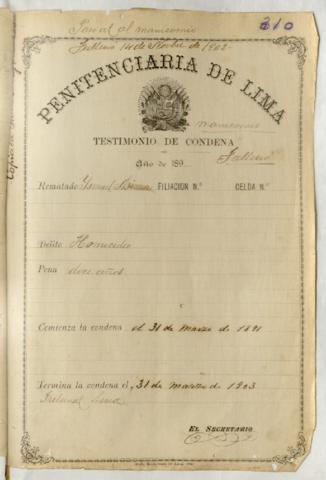 210
Pasó al manicomio
Falleció 14 de Octbre de 1902-
PENITENCIARIA DE LIMA
manicomio
TESTIMONIO DE CONDENA
Falleció
Año de 189
Rematado Ismael FILIACION N.º CELDA N.º
Delito Homicidio
Pena doce años
Comienza la condena el 31 de Marzo de 1891
Termina la condena el 31 de marzo de 1903
Lima
EL SECRETARIO